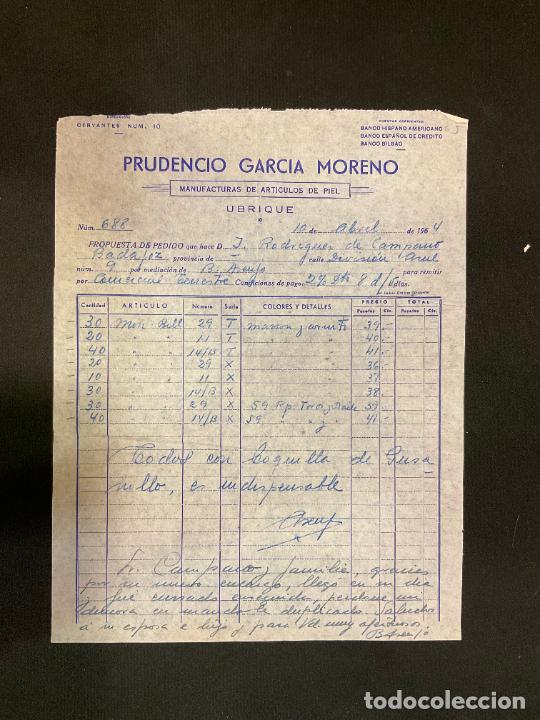 CERVANTES NUM. 10
CUENTAS CORRIENTES
BANCO HISPANO AMERICANO
BANCO ESPAÑOL DE CREDITO
BANCO BILBAO
PRUDENCIO GARCIA MORENO
MANUFACTURAS DE ARTICULOS DE PIEL
UBRIQUE
Núm. 688 10 de Abril de 1964
PROPUESTA DE PEDIDO que hace D. J. Rodriguez de Campano
Badajoz provincia de — calle División Azul
núm. 9 por mediación de B. para remitir
por Comercial Terrestre Condiciones de pago: 2% Dto 8 d/f días.
Cantidad ARTICULO Número Suela COLORES Y DETALLES PRECIO TOTAL
Pesetas Cts. Pesetas Cts.
30 29 T marron y 39.-
20 " " 11 T 40.-
40 " " 14/B T 41.-
20 " " 29 X 36.-
10 " " 11 X 37.-
30 " " 14/B X 38.-
30 " " 29 X 59 Rp. 39.-
40 " " 14/B X 59 " " 41.-
Todos con boquilla de Gusa
nillo, es indispensable
Sr. Campano y familia, gracias
por su nuevo encargo, llegó en su día
que cursado enseguida, perdone mi
demora en mandarle duplicado. Saludos
á su esposa e hijo y para Vd. muy afectuosos.
todocoleccion